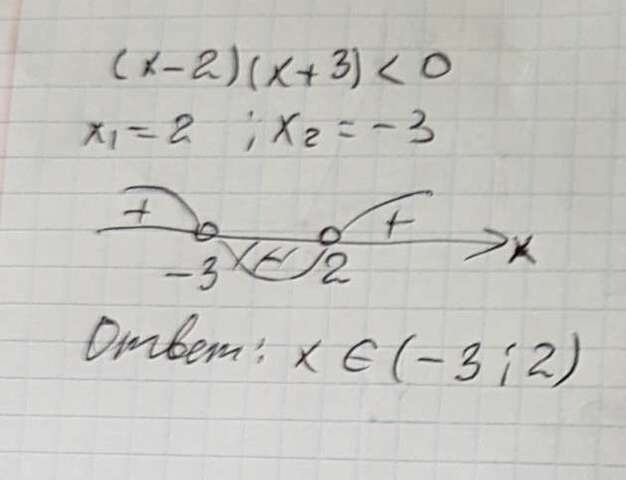 (x-2)(x+3)<0
x₁=2 ; x₂=-3
+ - + x
-3 2
Ответ: x∈(-3;2)